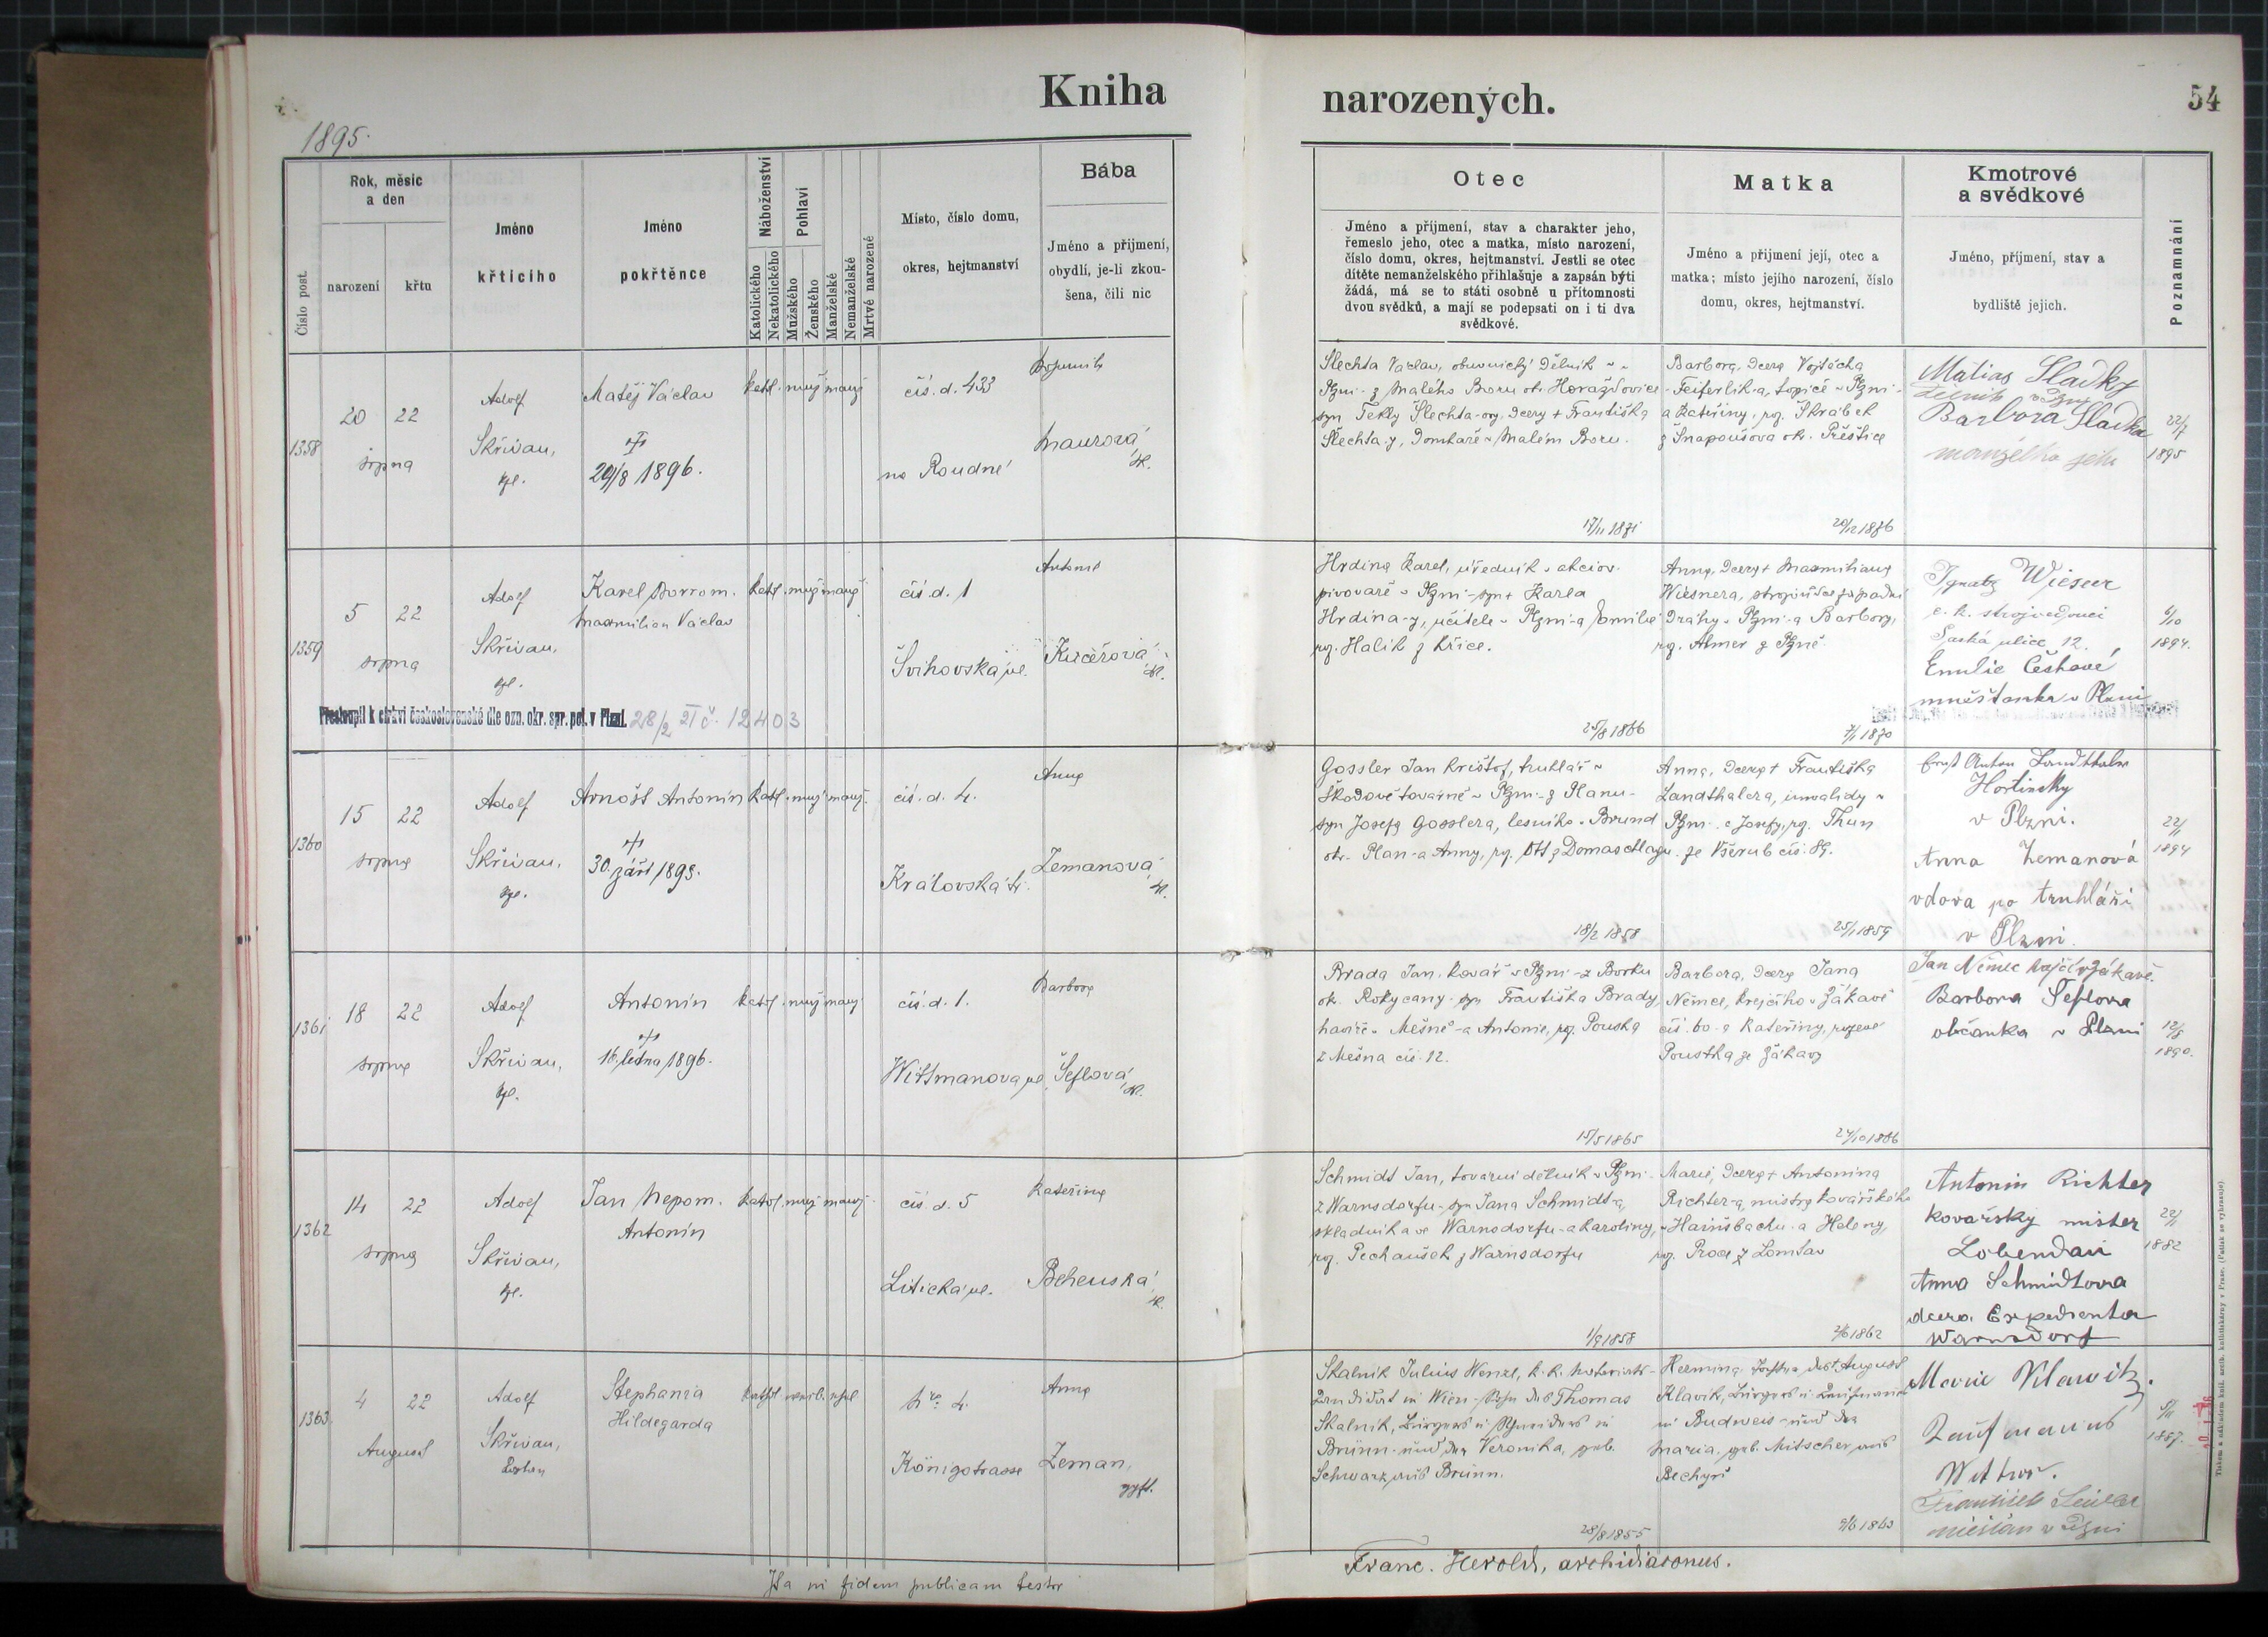 Kniha
narozených.
54
1895.
Číslo post.
Rok, měsíc
a den
narození
křtu
Jméno
křtícího
Jméno
pokřtěnce
Náboženství
Katolického
Nekatolického
Pohlaví
Mužského
Ženského
Manželské
Nemanželské
Mrtvě narozené
Místo, číslo domu,
okres, hejtmanství
Bába
Jméno a příjmení,
obydlí, je-li zkou-
šena, čili nic
Otec
Jméno a příjmení, stav a charakter jeho,
řemeslo jeho, otec a matka, místo narození,
číslo domu, okres, hejtmanství. Jestli se otec
dítěte nemanželského přihlašuje a zapsán býti
žádá, má se to státi osobně u přítomnosti
dvou svědků, a mají se podepsati on i ti dva
svědkové.
Matka
Jméno a příjmení její, otec a
matka; místo jejího narození, číslo
domu, okres, hejtmanství.
Kmotrové
a svědkové
Jméno, příjmení, stav a
bydliště jejich.
Poznamnání
1358
20 22
srpna
Adolf
Skřivan,
kpl.
Matěj Václav
29/8 1896.
katol. muž. manž.
čís. d. 433
na Roudné
Bohumila
Maurová
Šlechta Václav, obuvnický dělník v
Plzni - z Malého Boru okr. Horažďovice -
syn Tekly Šlechta-ovy, dcery + Františka
Šlechta-y, domkaře v Malém Boru.
17/11 1871
Barbora, dcera Vojtěcha
Feiferlík-a, topiče v Plzni -
a Kateřiny, roz. Škrabek
z Snopoušova okr. Přeštice
20/12 1876
Matias Sladky
dělník v Plzni
Barbora Sladka
manželka jeho
22/7
1895
1359
5 22
srpna
Adolf
Skřivan,
kpl.
Karel Borrom.
Maxmilian Václav
katol. muž. manž.
čís. d. 1
Švihovská ul.
Antonie
Kučerová
Přestoupil k církvi československé dle ozn. okr. spr. pol. v Plzni. 28/2 21 č. 12403
Hrdina Karel, úředník v akciov.
pivovaře v Plzni - syn + Karla
Hrdina-y, učitele v Plzni - a Emilie
roz. Halík z Křice.
25/8 1866
Anna, dcera + Maxmiliana
Wiesnera, strojvůdce západní
Dráhy v Plzni - a Barbory,
roz. Almer z Plzně
7/1 1870
Ignatz Wieser
c. k. strojvedoucí
Saská ulice 12.
Emilie Češková
měšťanka v Plzni
6/10
1894.
1360
15 22
srpna
Adolf
Skřivan,
kpl.
Arnošt Antonín
30. září 1895.
katol. muž. manž.
čís. d. 4.
Královská tř.
Anna
Zemanová
Gossler Jan Krištof, truhlář v
Škodově továrně v Plzni - z Planu -
syn Josefa Gosslera, lesníka v Brand
okr. Plan - a Anny, roz. Ott z Domaschlagu
18/2 1858
Anna, dcera + Františka
Landthalera, invalidy v
Plzni - a Josefy, roz. Thun
ze Všerub čís. 89.
25/1 1859
Ernst Anton Landthaler
Hostinsky
v Plzni.
Anna Zemanová
vdova po truhláři
v Plzni.
22/11
1894
1361
18 22
srpna
Adolf
Skřivan,
kpl.
Antonín
16. ledna 1896.
katol. muž. manž.
čís. d. 1.
Wittmanova ul.
Barbora
Šeflová
Brada Jan, kovář v Plzni - z Borku
ok. Rokycany - syn Františka Brady,
havíře v Mešně - a Antonie, roz. Pouska
z Mešna čís. 12.
15/5 1865
Barbora, dcera Jana
Němec, krejčího v Žákavě
čís. 60 - a Kateřiny, rozené
Poustka ze Žákavy
24/10 1866
Jan Němec krejčí v Žákavě.
Barbora Šeflova
občanka v Plzni
12/8
1890.
1362
14 22
srpna
Adolf
Skřivan,
kpl.
Jan Nepom.
Antonín
katol. muž. manž.
čís. d. 5
Litická ul.
Kateřina
Behenská
Schmidt Jan, tovární dělník v Plzni -
z Warnsdorfu - syn Jana Schmidt-a,
skladníka ve Warnsdorfu - a Karoliny,
roz. Pechaušek z Warnsdorfu
Marie, dcera + Antonína
Richter-a, mistra kovářského
v Hainsbachu - a Heleny,
2/6 1862
Antonin Richter
kovářsky mister
Lobendau
Anna Schmidtova
dcera Expedienta
Warnsdorf
22/11
1882
1363
4 22
August
Adolf
Skřivan,
Stephania
Hildegarda
kathol. weibl. ehel.
Nro 4.
Königstrasse
Anna
Zeman,
Skalnik Julius Wenzl, k. k. Notariats-
Kandidat in Wien - Sohn des Thomas
Skalnik, Bürgers u. Schneiders in
Brünn - und der Veronika, geb.
Schwarz aus Brünn.
28/8 1855
Hermina, Tochter des + August
Klavik, Bürgers u. Kaufmanns
in Budweis - und der
Maria, geb. Mitscher aus
Bechyň
9/6 1863
Marie Klawik,
Kaufmanns
Witwe.
František
měšťan v Plzni
5/11
1887.
Ita in fidem publicam testor
Franc. Herold, archidiaconus.